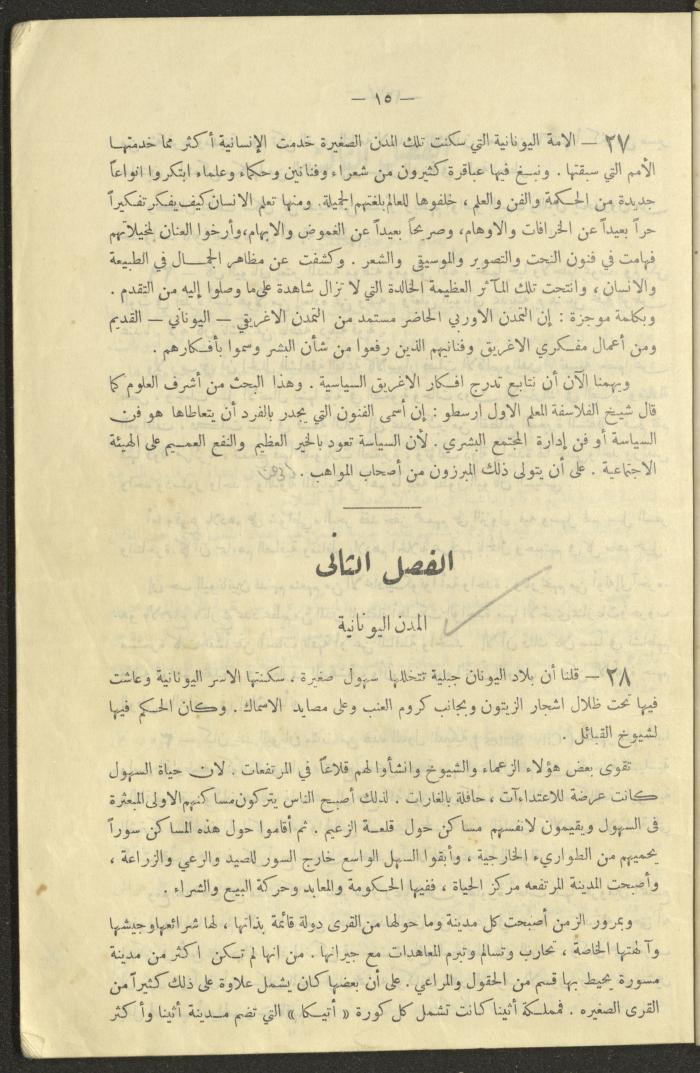 — ١٥ —
٢٧ — الامة اليونانية التي سكنت تلك المدن الصغيرة خدمت الإنسانية أكثر مما خدمتها
الأمم التي سبقتها . ونبغ فيها عباقرة كثيرون من شعراء وفنانين وحكماء وعلماء ابتكروا انواعاً
جديدة من الحكمة والفن والعلم ، خلفوها للعالم بلغتهم الجميلة . ومنها تعلم الانسان كيف يفكر تفكيراً
حراً بعيداً عن الخرافات والاوهام، وصريحاً بعيداً عن الغموض والابهام، وأرخوا العنان لمخيلاتهم
فهامت في فنون النحت والتصوير والموسيقى والشعر . وكشفت عن مظاهر الجمال في الطبيعة
والانسان ، وانتجت تلك المآثر العظيمة الخالدة التي لا تزال شاهدة على ما وصلوا إليه من التقدم .
وبكلمة موجزة : إن التمدن الاوربي الحاضر مستمد من التمدن الاغريقي — اليوناني — القديم
ومن أعمال مفكري الاغريق وفنانيهم الذين رفعوا من شأن البشر وسموا بأفكارهم .
ويهمنا الآن أن نتابع تدرج افكار الاغريق السياسية . وهذا البحث من أشرف العلوم كما
قال شيخ الفلاسفة المعلم الاول ارسطو : إن أسمى الفنون التي يجدر بالفرد أن يتعاطاها هو فن
السياسة أو فن إدارة المجتمع البشري . لأن السياسة تعود بالخير العظيم والنفع العميم على الهيئة
الاجتماعية . على أن يتولى ذلك المبرزون من أصحاب المواهب .
الفصل الثانى
المدن اليونانية
٢٨ — قلنا أن بلاد اليونان جبلية تتخللها سهول صغيرة . سكنتها الاسر اليونانية وعاشت
فيها تحت ظلال اشجار الزيتون وبجانب كروم العنب وعلى مصايد الاسماك . وكان الحكم فيها
لشيوخ القبائل .
تقوى بعض هؤلاء الزعماء والشيوخ وانشأوا لهم قلاعاً في المرتفعات . لان حياة السهول
كانت عرضة للاعتداءآت ، حافلة بالغارات . لذلك أصبح الناس يتركون مساكنهم الاولى المبعثرة
فى السهول ويقيمون لانفسهم مساكن حول قلعة الزعيم . ثم أقاموا حول هذه المساكن سوراً
يحميهم من الطواريء الخارجية ، وأبقوا السهل الواسع خارج السور للصيد والرعي والزراعة ،
وأصبحت المدينة المرتفعه مركز الحياة ، ففيها الحكومة والمعابد وحركة البيع والشراء .
وبمرور الزمن أصبحت كل مدينة وما حولها من القرى دولة قائمة بذاتها ، لها شرائعها وجيشها
وآلهتها الخاصة ، تحارب وتسالم وتبرم المعاهدات مع جيرانها . من انها لم تكن اكثر من مدينة
مسورة يحيط بها قسم من الحقول والمراعي . على أن بعضها كان يشمل علاوة على ذلك كثيراً من
القرى الصغيره . فمملكة أثينا كانت تشمل كل كورة « أتيكا » التي تضم مدينة أثينا وأكثر